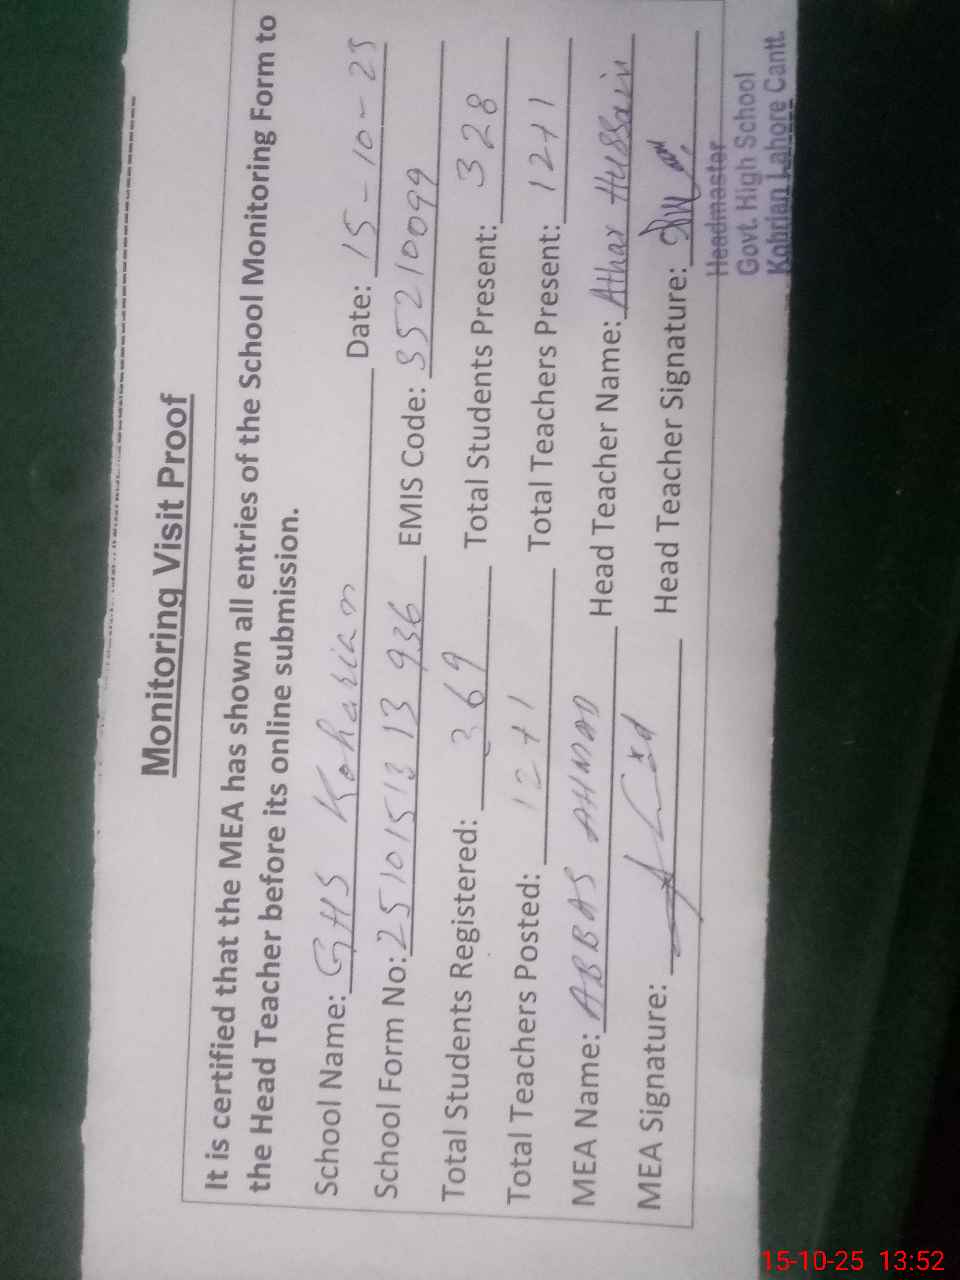 Monitoring Visit Proof
It is certified that the MEA has shown all entries of the School Monitoring Form to
the Head Teacher before its online submission.
School Name: GHS Koharian Date: 15-10-25
School Form No: 25101513 13 936 EMIS Code: 35210099
Total Students Registered: 369 Total Students Present: 328
Total Teachers Posted: 12+1 Total Teachers Present: 12+1
MEA Name: ABBAS AHMAD Head Teacher Name: Athar Hussain
MEA Signature: Head Teacher Signature:
Headmaster
Govt. High School
Kohrian Lahore Cantt.
15-10-25 13:52